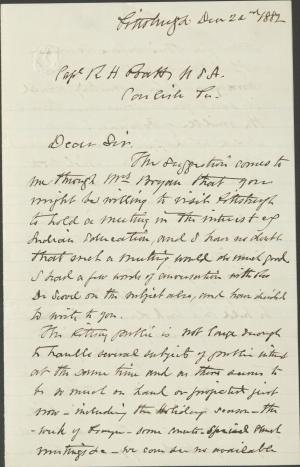 Pittsburgh Dec 22nd 1882
Capt R H Pratt U S A.
Carlisle Pa.
Dear Sir.
The suggestion comes to
me through Mrs Bryan that you
might be willing to visit Pittsburgh
to hold a meeting in the interest of
Indian Education, and I have no doubt
that such a meeting would do much good.
I had a few words of conversation with
Dr on the subject also, and have decided
to write to you.
The Pittsbg public is not large enough
to handle several subjects of public interest
at the same time and as there seems to
be so much on hand or projected just
now - including the Holiday season - the
week of Prayer - some special Church
meetings &c - we can see no available